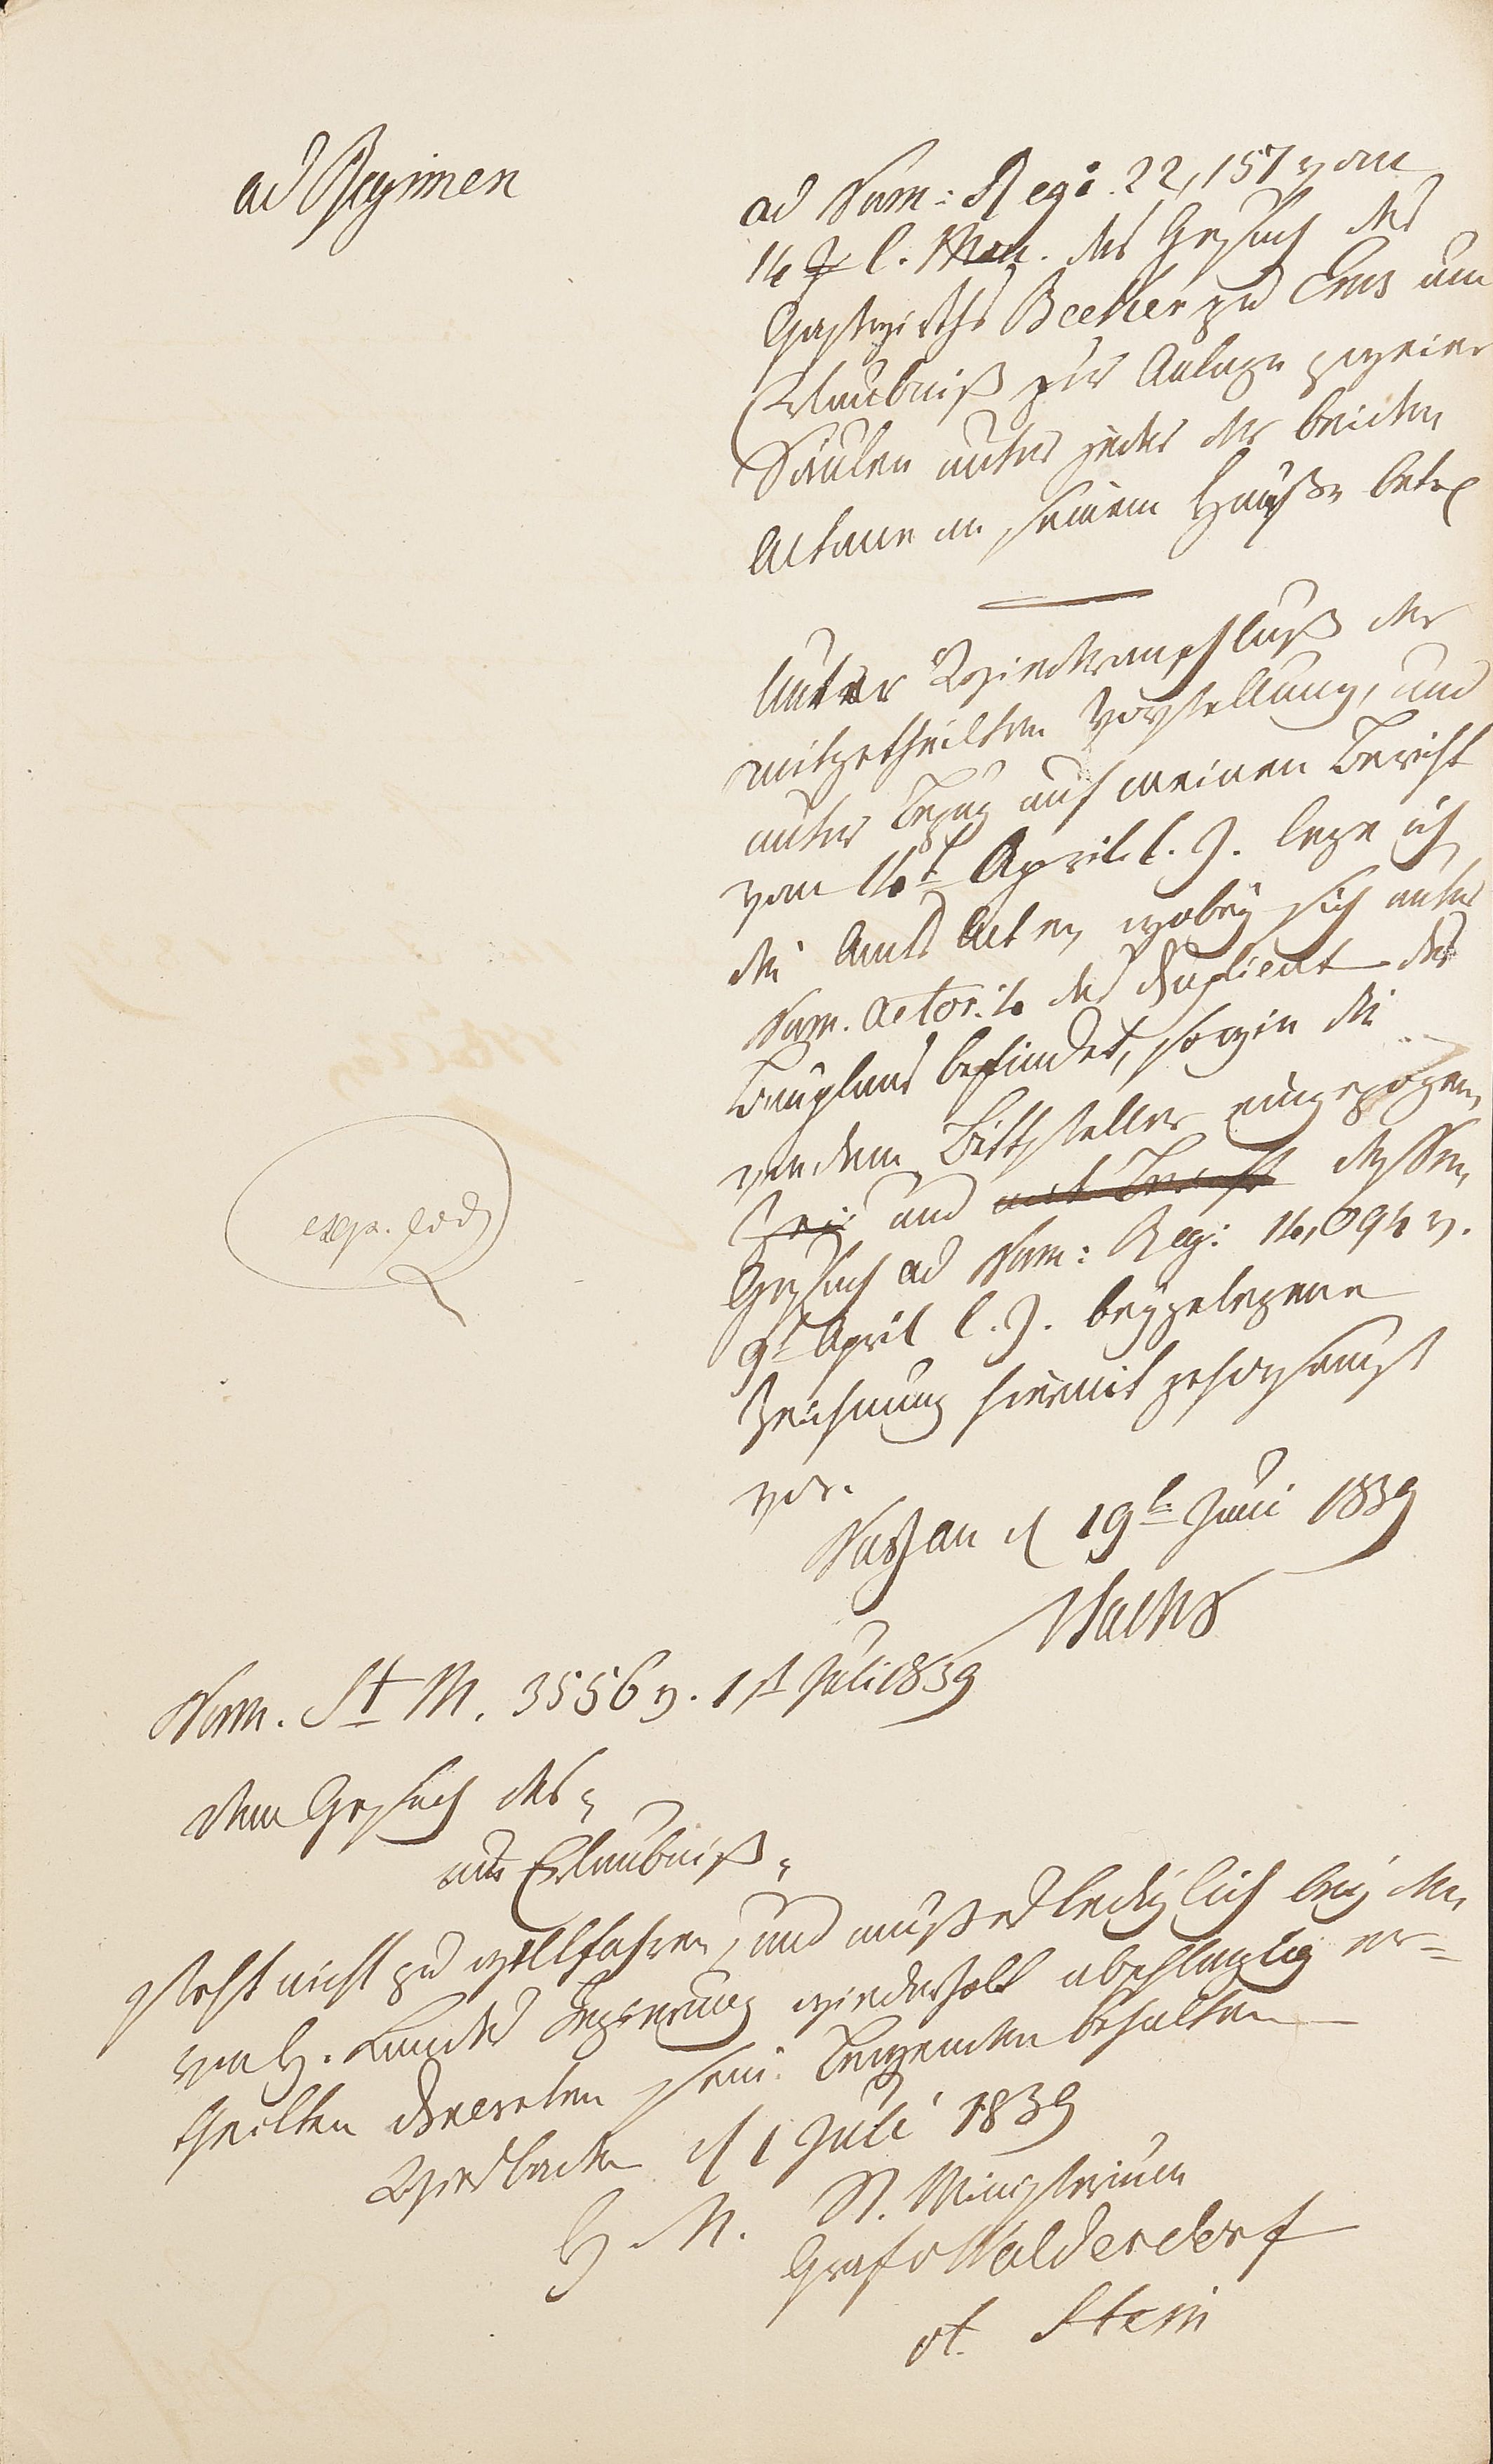 ad Regimen
ad Num: Regi. 22,157 vom
14 l. Mon. das Gesuch des
Gastwirths Becker zu Ems um
Erlaubniß zur Anlage zweier
Säulen unter jeder der beiden
Altane an seinem Hauße betr.
Unter Wiederanschluß der
mitgetheilten Vorstellung, und
unter Bezug auf meinen Bericht
vom 14t April l. J. lege ich
die Amts Acten, wobey sich unter
Num. actor. 4 das Duplicat des
Bauplans befindet, sowie die
von dem Bittsteller eingezogene,
und mit Bericht dessen
Gesuch ad Num: Reg: 14,094 v.
9t April l. J. beygelegene
Zeichnung hiermit gehorsamst
vor.
Nassau d 19t Juni 1839
exp. eod
Num. St. M. 3556 v. 1st Juli 1839
Dem Gesuch des
um Erlaubniß
steht nicht zu willfahren, und muß es lediglich bey den
von H. Landes Regierung wiederholt abschlägig er-
theilten Decreten sein Bewenden behalten
Wiesbaden d 1 Juli 1839
H. N. St. Ministerium
Graf v Walderdorf
vt. Stein